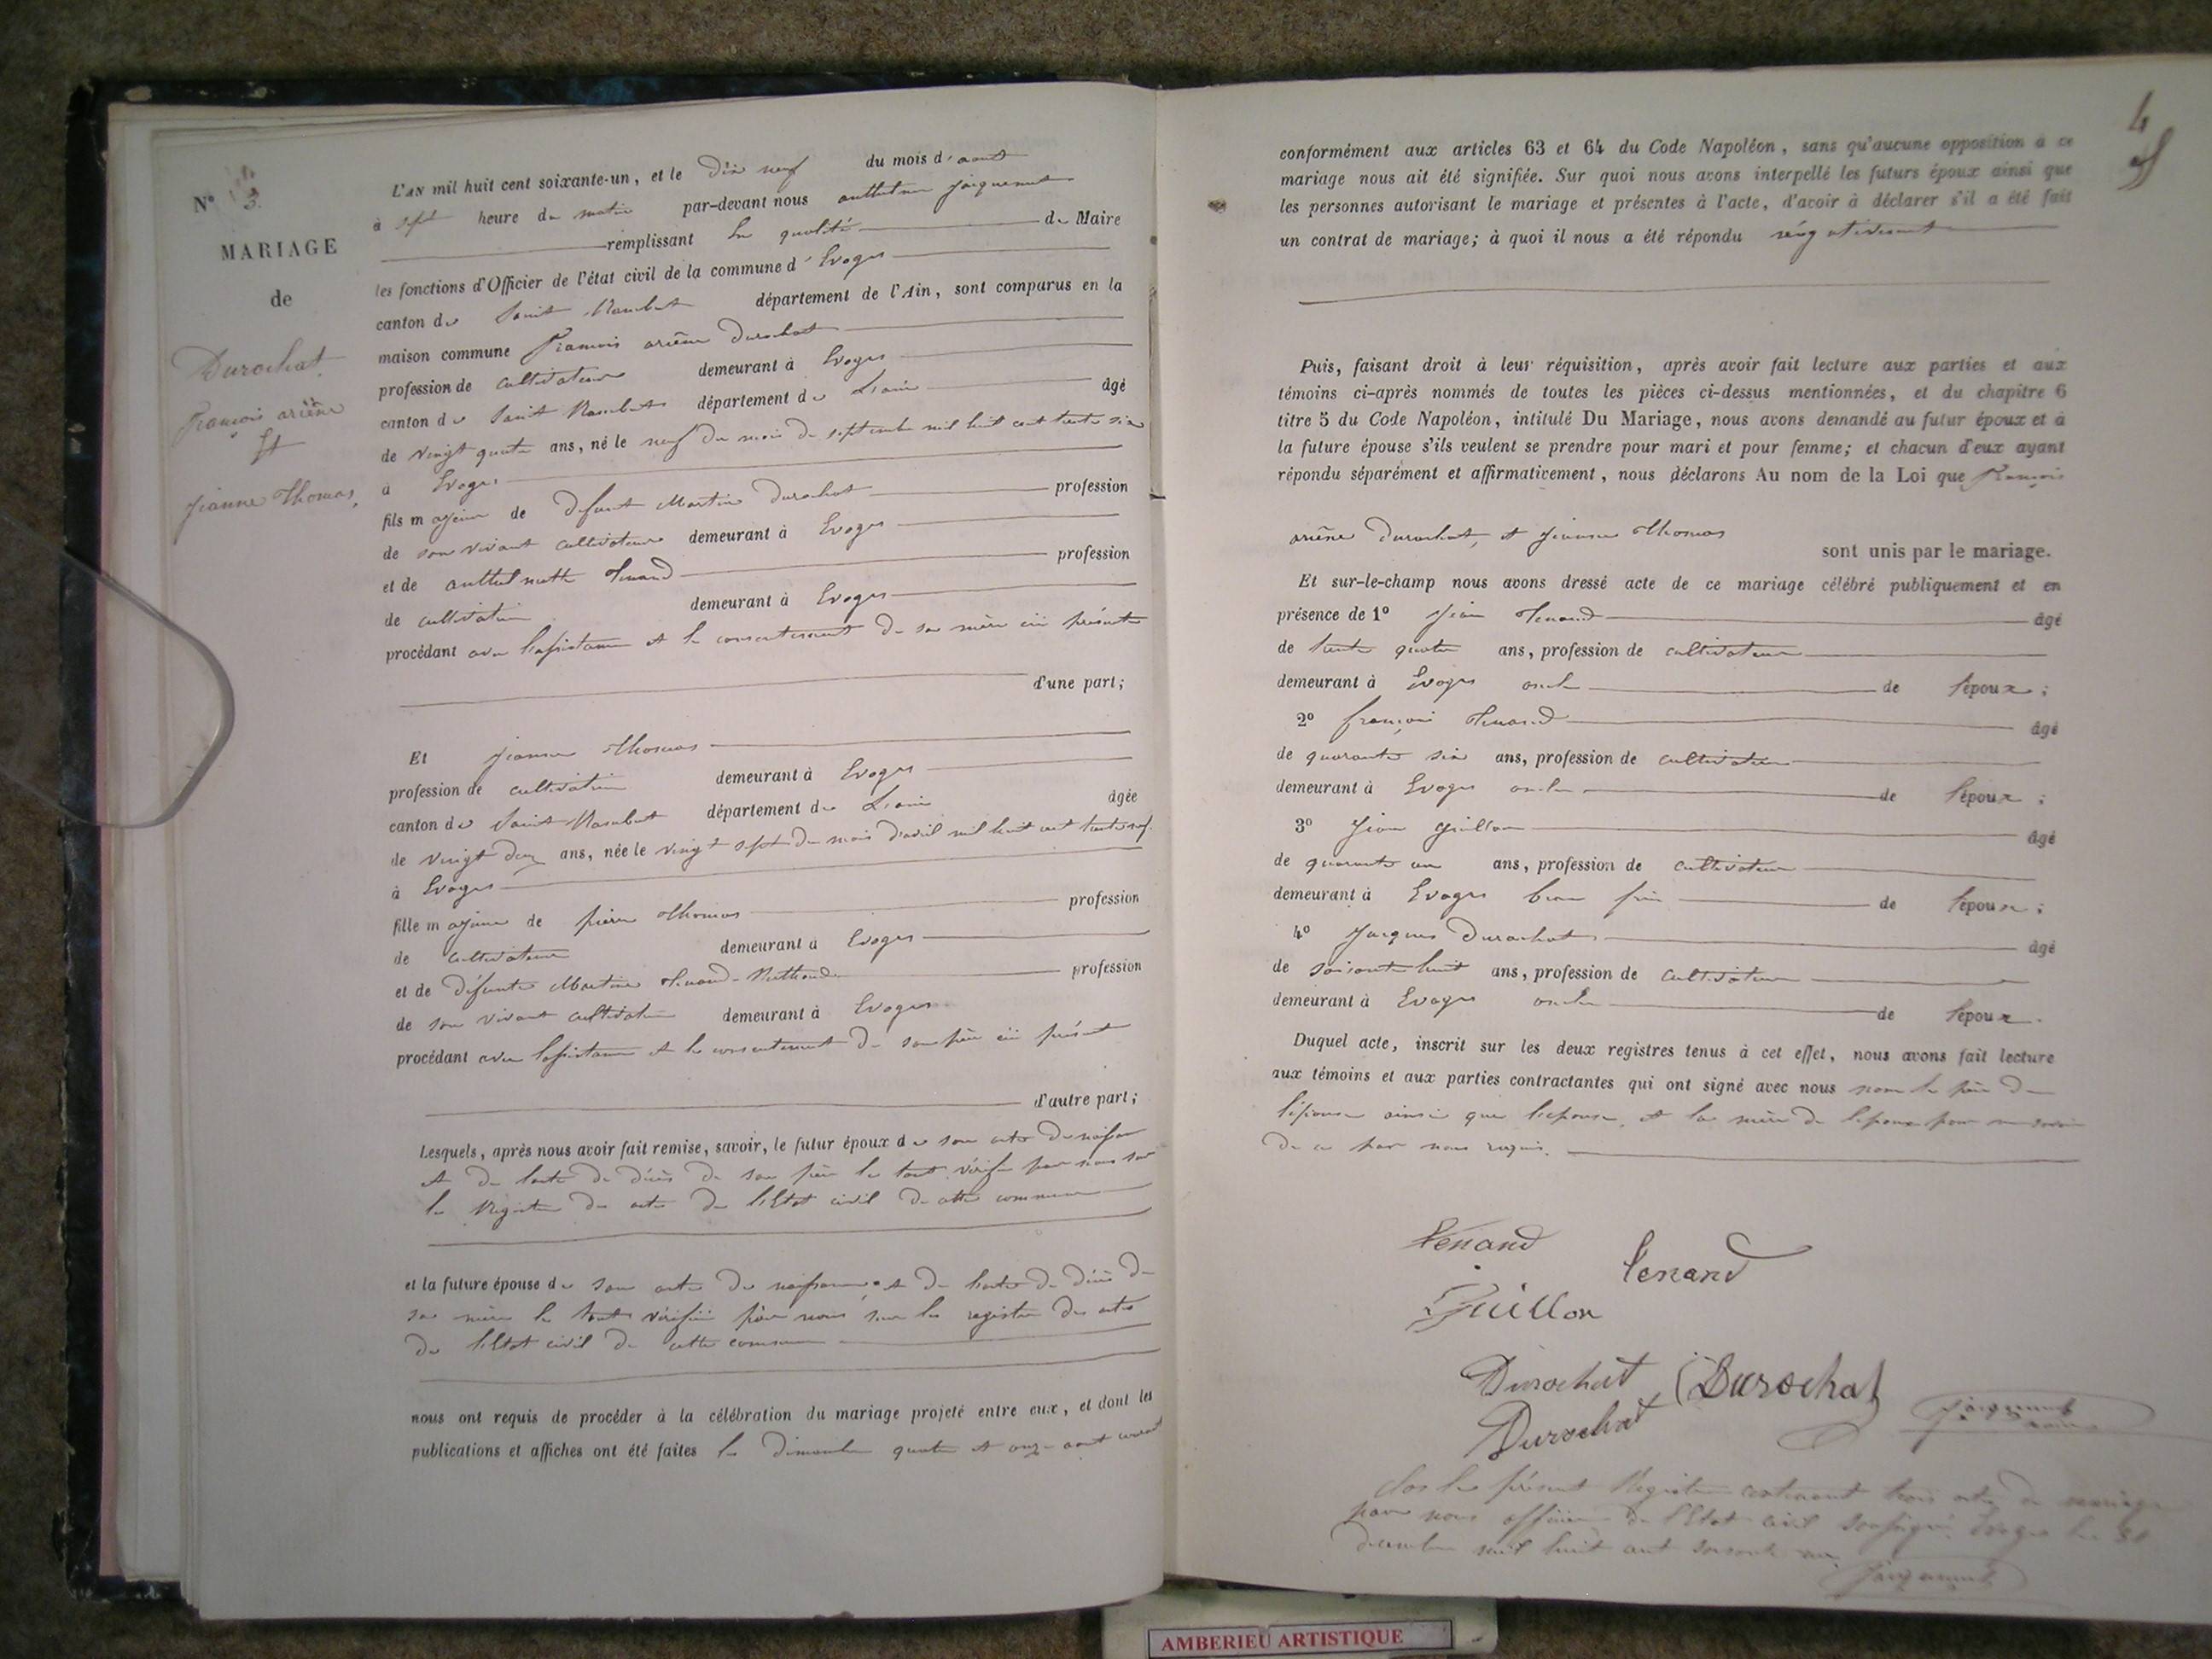 N° 3.
MARIAGE
de
Durochat
françois arsène
Et
jeanne Thomas
L'AN mil huit cent soixante-un, et le Dix neuf du mois d'aout
à sept heure du matin par-devant nous anthelme jacquemet
remplissant En qualité de Maire
les fonctions d'Officier de l'état civil de la commune d'Evoges
canton de Saint Rambert département de l'Ain, sont comparus en la
maison commune françois arsène Durochat
profession de cultivateur demeurant à Evoges
canton de Saint Rambert département de L'ain âgé
de vingt quatre ans, né le neuf du mois de septembre mil huit cent trente six
à Evoges
fils majeur de defunt Martin Durochat profession
de son vivant cultivateur demeurant à Evoges
et de Tenand profession
de cultivatrice demeurant à Evoges
procédant avec l'assistance et le consentement de sa mère ici présente
d'une part;
Et jeanne Thomas
profession de cultivatrice demeurant à Evoges
canton de Saint Rambert département de L'ain âgée
de vingt deux ans, née le vingt sept du mois d'avril mil huit cent trente neuf
à Evoges
fille majeure de pierre Thomas profession
de cultivateur demeurant à Evoges
et de défunte Martine Tenand profession
de son vivant cultivatrice demeurant à Evoges
procédant avec l'assistance et le consentement de son père ici présent
d'autre part;
Lesquels, après nous avoir fait remise, savoir, le futur époux de son acte de naissance
et de l'acte de décès de son père le tout vérifié par nous sur
les Registre des actes de l'Etat civil de cette commune
et la future épouse de son acte de naissance, et de l'acte de décès de
sa mère le tout vérifié par nous sur les registre des actes
de l'Etat civil de cette commune
nous ont requis de procéder à la célébration du mariage projeté entre eux, et dont les
publications et affiches ont été faites les dimanche quatre et onze aout courant
4
conformément aux articles 63 et 64 du Code Napoléon, sans qu'aucune opposition à ce
mariage nous ait été signifiée. Sur quoi nous avons interpellé les futurs époux ainsi que
les personnes autorisant le mariage et présentes à l'acte, d'avoir à déclarer s'il a été fait
un contrat de mariage; à quoi il nous a été répondu négativement
Puis, faisant droit à leur réquisition, après avoir fait lecture aux parties et aux
témoins ci-après nommés de toutes les pièces ci-dessus mentionnées, et du chapitre 6
titre 5 du Code Napoléon, intitulé Du Mariage, nous avons demandé au futur époux et à
la future épouse s'ils veulent se prendre pour mari et pour femme; et chacun d'eux ayant
répondu séparément et affirmativement, nous déclarons Au nom de la Loi que françois
arsène Durochat, et jeanne Thomas
sont unis par le mariage.
Et sur-le-champ nous avons dressé acte de ce mariage célébré publiquement et en
présence de 1° jean Tenand âgé
de trente quatre ans, profession de cultivateur
demeurant à Evoges oncle de l'époux;
2° françois Tenand âgé
de quarante six ans, profession de cultivateur
demeurant à Evoges oncle de l'époux;
3° jean guillon âgé
de quarante un ans, profession de cultivateur
demeurant à Evoges beau frère de l'époux;
4° jacques Durochat âgé
de soisante huit ans, profession de cultivateur
demeurant à Evoges oncle de l'époux.
Duquel acte, inscrit sur les deux registres tenus à cet effet, nous avons fait lecture
aux témoins et aux parties contractantes qui ont signé avec nous non le père de
l'épouse ainsi que l'epouse, et la mère de l'epoux pour ne savoir
de ce par nous requis.
tenand
tenand
Guillon
Durochat
Durochat
Durochat
jacquemet
maire
Clos le présent Registre contenant trois actes de mariage
par nous officier de l'Etat civil soussigné Evoges le
decembre mil huit cent soisante un
jacquemet
AMBERIEU ARTISTIQUE